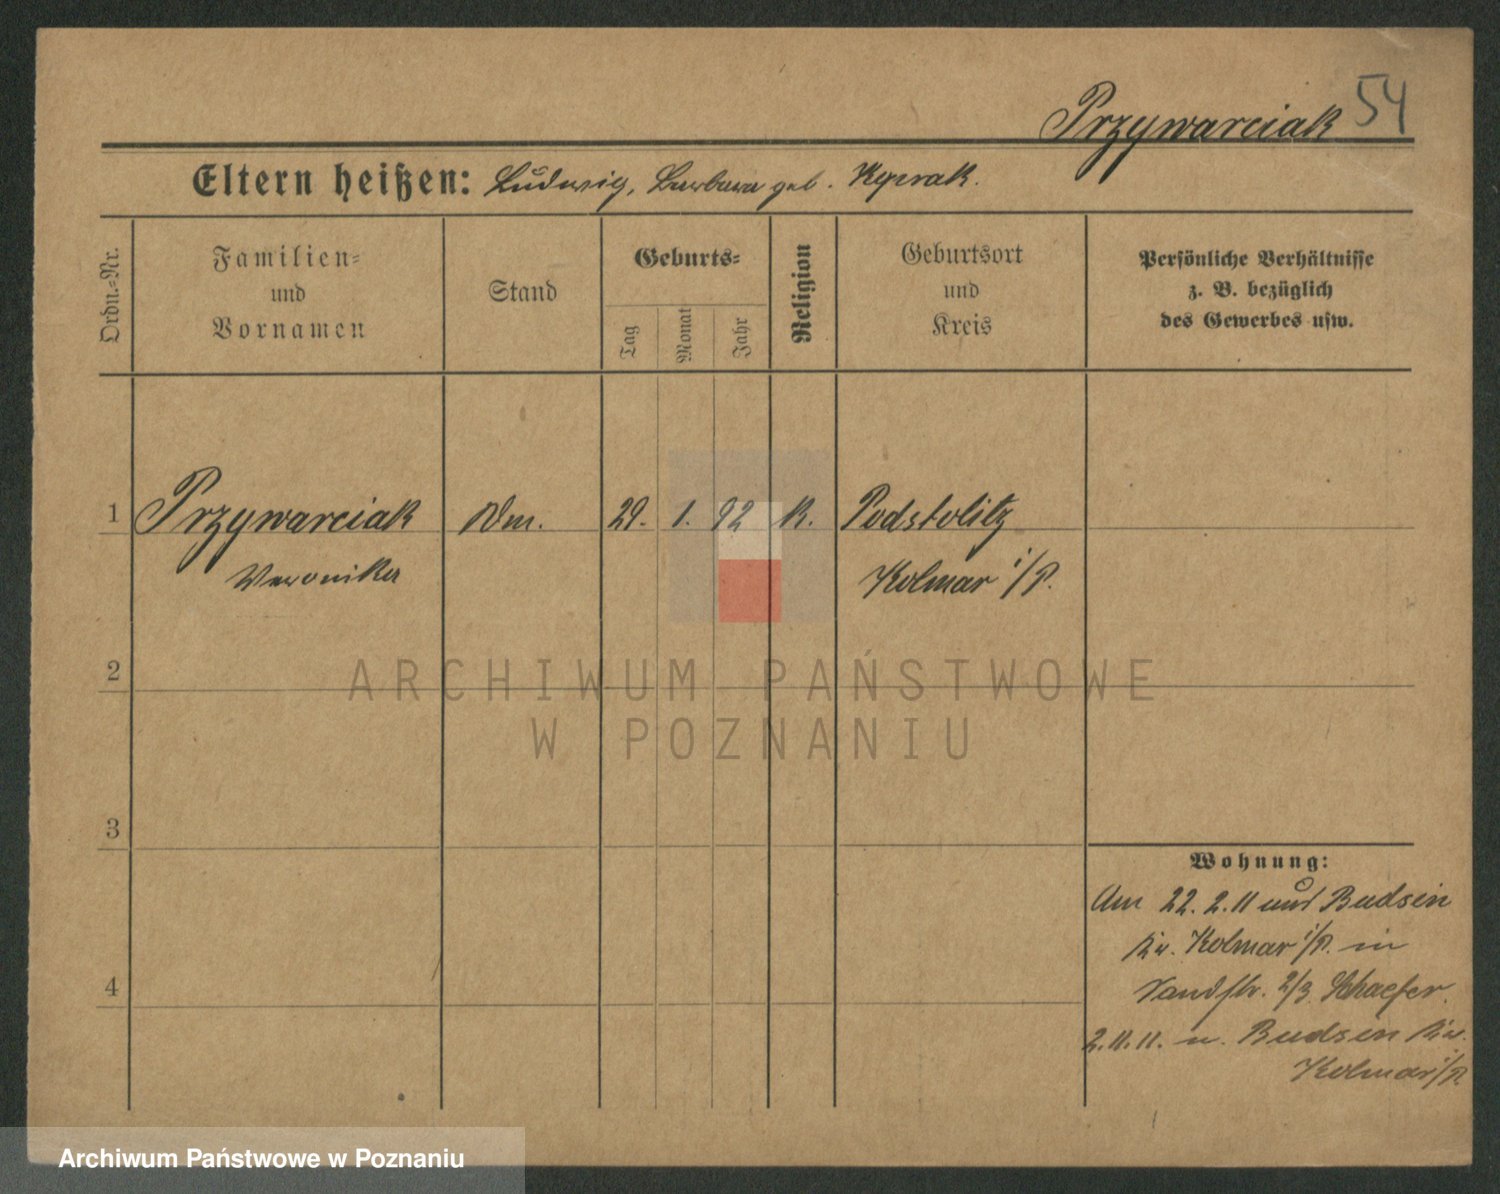 Przywarciak 54
Eltern heißen: Ludwig, Barbara geb.
Ordn.-Nr.
Familien-
und
Vornamen
Stand
Geburts-
Tag
Monat
Jahr
Religion
Geburtsort
und
Kreis
Persönliche Verhältnisse
z. B. bezüglich
des Gewerbes usw.
1 Przywarciak 29. 1. 92 K. Podstolitz
Veronika Kolmar i/P.
2
ARCHIWUM PAŃSTWOWE
W POZNANIU
3
Wohnung:
Am 22. 2. 11 aus Budsin
Kr. Kolmar i/P. in
Sandstr. 2/3 Schaefer
4
2. 11. 11. n. Budsin Kr.
Kolmar i/P.
Archiwum Państwowe w Poznaniu